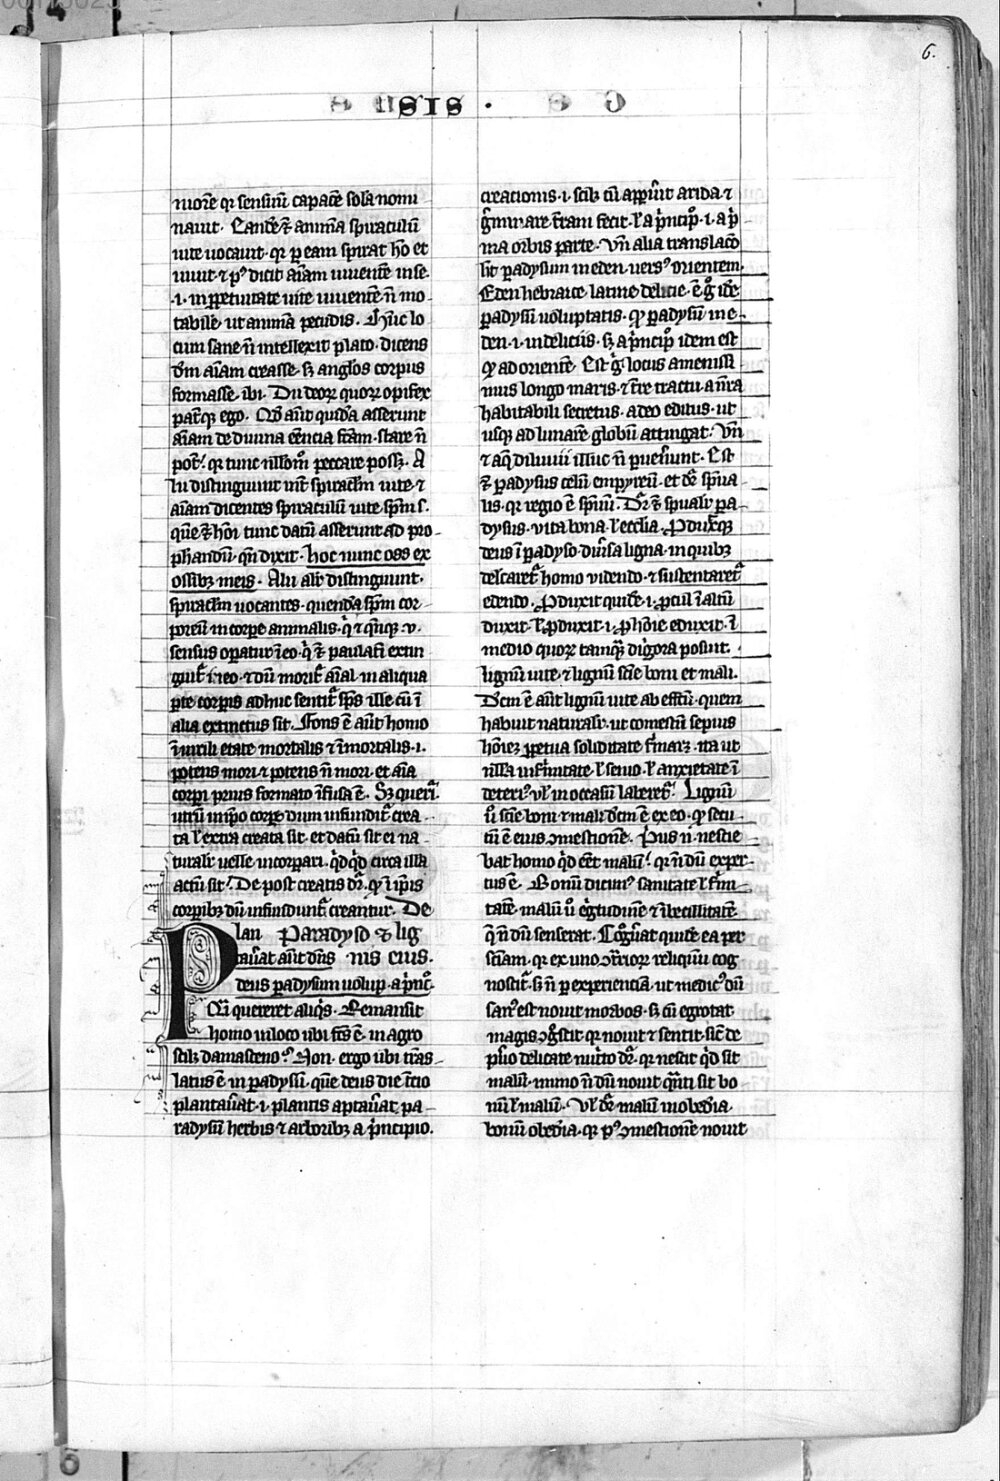 6.
SIS .
niorē qr sensinū capacē sola nomi
nauit. Eandē ⁊ animā spiraculū
uite uocauit. qr p eam spirat hō et
uiuit. ⁊ pꝰ dicit aīam uiuentē in se.
.i. in ppetuitate uite uiuentē. ñ mo
tabilē ut animā pecudis. Hūc lo
cum sane ñ intellexit plato. dicens
dm aīam creasse. sꝫ angl̄os corpus
formasse. ibi. Dii deoꝝ quoꝝ opifex
pat̄qꝫ ego. Qd̄ aūt quidā asserunt
aīam de diuina eēncia fcām. stare ñ
pot̄. qr tunc nllom̄ peccare possꝫ. A
lii distinguunt int̄ spiraclm uite ⁊
aīam dicentes spiraculū uite spm s.
quē ⁊ hōi tunc datū asserunt ad pro
phandū. qn̄ dixit. hoc nunc oss ex
ossibꝫ meis. Alii alr̄ distinguunt.
spiraclm uocantes. quendā spm cor
poreū in corpe animalis. q̇ ⁊ qn̄qꝫ .v.
sensus operatur ī eo. q̇ ⁊ paulatī extin
guit̄ ī eo. ⁊ dū morit̄ aīal. in aliqua
pte corpis adhuc sentit̄ sp̄s ille cū ī
alia extinctus sit. Factus ē aūt homo
ī uirili etate mortalis ⁊ īmortalis. i.
potens mori. ⁊ potens ñ mori. et aīa
corpi prius formato īfusa ē. Sꝫ querit̄.
utrū in ipo corpe dum infundit̄ crea
ta ł extra creata sit. et datū sit ei na
turalr̄ uelle incorpari. qdqd circa illā
actū sit. De post creatis dr̄. qꝫ ī ip̄is
corpibꝫ dū infundunt̄ creantur. De
Plan Paradyso ⁊ lig
tau̅at aūt dn̄s nis eius.
deus padysum uolup. a pinc̄.
Qi quereret aliqs. Remansit
homo in loco ubi fcs ē. in agro
scilꝫ damasceno. Non. ergo ubi trās
latus ē in padysū. quē deus die t̄cio
plantau̅at. i. plantis aptau̅at. pa
radysū herbis ⁊ arboribꝫ a pincipio.
creationis. i. scilꝫ cū appuit arida. ⁊
gminare tr̄am fecit. ł a pincipo. i. a p
ma orbis parte. Vn̄ alia translacō
ht̄ padysum in eden. uersꝰ orientem.
Eden hebraice. latine delicie. ē g̊ idē
padysū uoluptatis. qꝫ padysū in e
den. i. in deliciis. sꝫ a pincipo idem est
qꝫ ad orientē. Est g̊ locus amenissi
mus longo maris. ⁊ trē tractu. a nr̄a
habitabili secretus. adeo editus. ut
usqꝫ ad lunarē globū attingat. Vn̄
⁊ aq̄ diluuii illuc ñ puen̄unt. Est
⁊ padysus celū empyreū. et dr̄ spūa
lis. qr regio ē spūū. Dr̄ ⁊ spualr̄ pa
dysus. vita bona. ł ecclīa. Produx̄qꝫ
deus ī padyso diuersa ligna. in quibꝫ
delcaret̄ homo uidendo. ⁊ sustentaret̄
edendo. Produxit quidē. i. pcul ī altū
duxit. ł pduxit. i. p hoīē eduxit. ī
medio quoꝝ tamqꝫ dig̊ora posuit.
lignū uite. ⁊ lignū scīe boni et mali.
Dcm ē aūt lignū uite ab effcū. quem
habuit naturalr̄. ut comestū sepius
hoīez ppetua soliditate fīmarꝫ. ita ut
nlla infirmitate. ł senio. ł anxietate ī
deteriꝰ. uł in occasū laberet̄. Lignū
ū scīe boni ⁊ mali dcm ē ex eo. qꝫ secu
tū ē eius ꝯmestionē. Prius n̄ nescie
bat homo qd eēt malū. qr ñ dū exper
tus ē. Bonū dicimꝰ sanitatē ł firmi
tatē. malū ū egtudinē ⁊ ībecillitatē.
q̄ ñ dū senserat. Cogn̄at quidē ea per
sciam. qr ex uno ꝯtrarioꝝ reliquū cog
noscit̄. sꝫ ñ p experienciā. ut medicꝰ dū
sanꝰ est nouit morbos. sꝫ cū egrotat
magis ꝯg̊scit. qr nouit ⁊ sentit. sic̄ de
psio delicate nut̄to dr̄. qr nescit qd sit
malū. immo ñ dū nouit quāti sit bo
nū ł malū. Vł dr̄ malū inobedīa.
bonū obedīa. qr pꝰ ꝯmestionē nouit